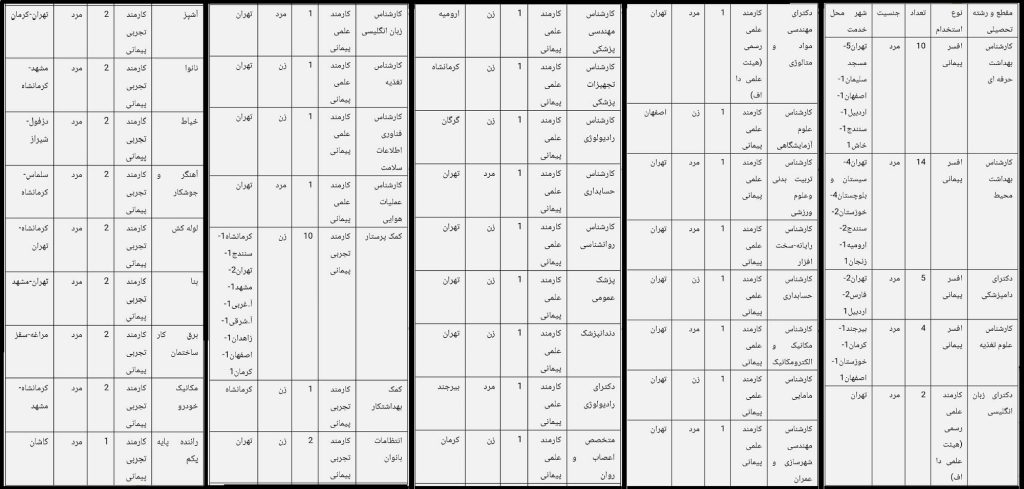 مقطع و رشته تحصیلی	نوع استخدام	تعداد	جنسیت	شهر محل خدمت
کارشناس بهداشت حرفه ای	افسر پیمانی	10	مرد	تهران5- مسجد سلیمان1- اصفهان1- اردبیل1- سنندج1- خاش1
کارشناس بهداشت محیط	افسر پیمانی	14	مرد	تهران4- سیستان و بلوچستان4- خوزستان2- سنندج2- ارومیه1- زنجان1
دکترای دامپزشکی	افسر پیمانی	5	مرد	تهران2- فارس2- اردبیل1
کارشناس علوم تغذیه	افسر پیمانی	4	مرد	بیرجند1- کرمان1- خوزستان1- اصفهان1
دکترای زبان انگلیسی	کارمند علمی رسمی (هیئت علمی دا اف)	2	مرد	تهران
دکترای مهندسی مواد و متالوژی	کارمند علمی رسمی (هیئت علمی دا اف)	1	مرد	تهران
کارشناس علوم آزمایشگاهی	کارمند علمی پیمانی	1	زن	اصفهان
کارشناس تربیت بدنی وعلوم ورزشی	کارمند علمی پیمانی	1	مرد	تهران
کارشناس رایانه-سخت افزار	کارمند علمی پیمانی	1	مرد	تهران
کارشناس حسابداری	کارمند علمی پیمانی	1	زن	تهران
کارشناس مکانیک و الکترومکانیک	کارمند علمی پیمانی	1	مرد	تهران
کارشناس مامایی	کارمند علمی پیمانی	1	زن	تهران
کارشناس مهندسی شهرسازی و عمران	کارمند علمی پیمانی	1	مرد	تهران
کارشناس مهندسی پزشکی	کارمند علمی پیمانی	1	زن	ارومیه
کارشناس تجهیزات پزشکی	کارمند علمی پیمانی	1	زن	کرمانشاه
کارشناس رادیولوژی	کارمند علمی پیمانی	1	زن	گرگان
کارشناس حسابداری	کارمند علمی پیمانی	1	مرد	تهران
کارشناس روانشناسی	کارمند علمی پیمانی	1	زن	تهران
پزشک عمومی	کارمند علمی پیمانی	1	زن	تهران
دندانپزشک	کارمند علمی پیمانی	1	زن	تهران
دکترای رادیولوژی	کارمند علمی پیمانی	1	مرد	بیرجند
متخصص اعصاب و روان	کارمند علمی پیمانی	1	زن	کرمان
کارشناس زبان انگلیسی	کارمند علمی پیمانی	1	مرد	تهران
کارشناس تغذیه	کارمند علمی پیمانی	1	زن	تهران
کارشناس فناوری اطلاعات سلامت	کارمند علمی پیمانی	1	زن	تهران
کارشناس عملیات هوایی	کارمند علمی پیمانی	1	مرد	تهران
کمک پرستار	کارمند تجربی پیمانی	10	زن	کرمانشاه1- سنندج1- تهران2- مشهد1- آ.غربی1- آ.شرقی1- زاهدان1- اصفهان1- کرمان1
کمک بهداشتکار	کارمند تجربی پیمانی	1	زن	کرمانشاه
انتظامات بانوان	کارمند تجربی پیمانی	2	زن	تهران
آشپز	کارمند تجربی پیمانی	2	مرد	تهران-کرمان
نانوا	کارمند تجربی پیمانی	2	مرد	مشهد- کرمانشاه
خیاط	کارمند تجربی پیمانی	2	مرد	دزفول- شیراز
آهنگر و جوشکار	کارمند تجربی پیمانی	2	مرد	سلماس- کرمانشاه
لوله کش	کارمند تجربی پیمانی	2	مرد	کرمانشاه- تهران
بنا	کارمند تجربی پیمانی	2	مرد	تهران-مشهد
برق کار ساختمان	کارمند تجربی پیمانی	2	مرد	مراغه-سقز
مکانیک خودرو	کارمند تجربی پیمانی	2	مرد	کرمانشاه- مشهد
راننده پایه یکم	کارمند تجربی پیمانی	1	مرد	کاشان